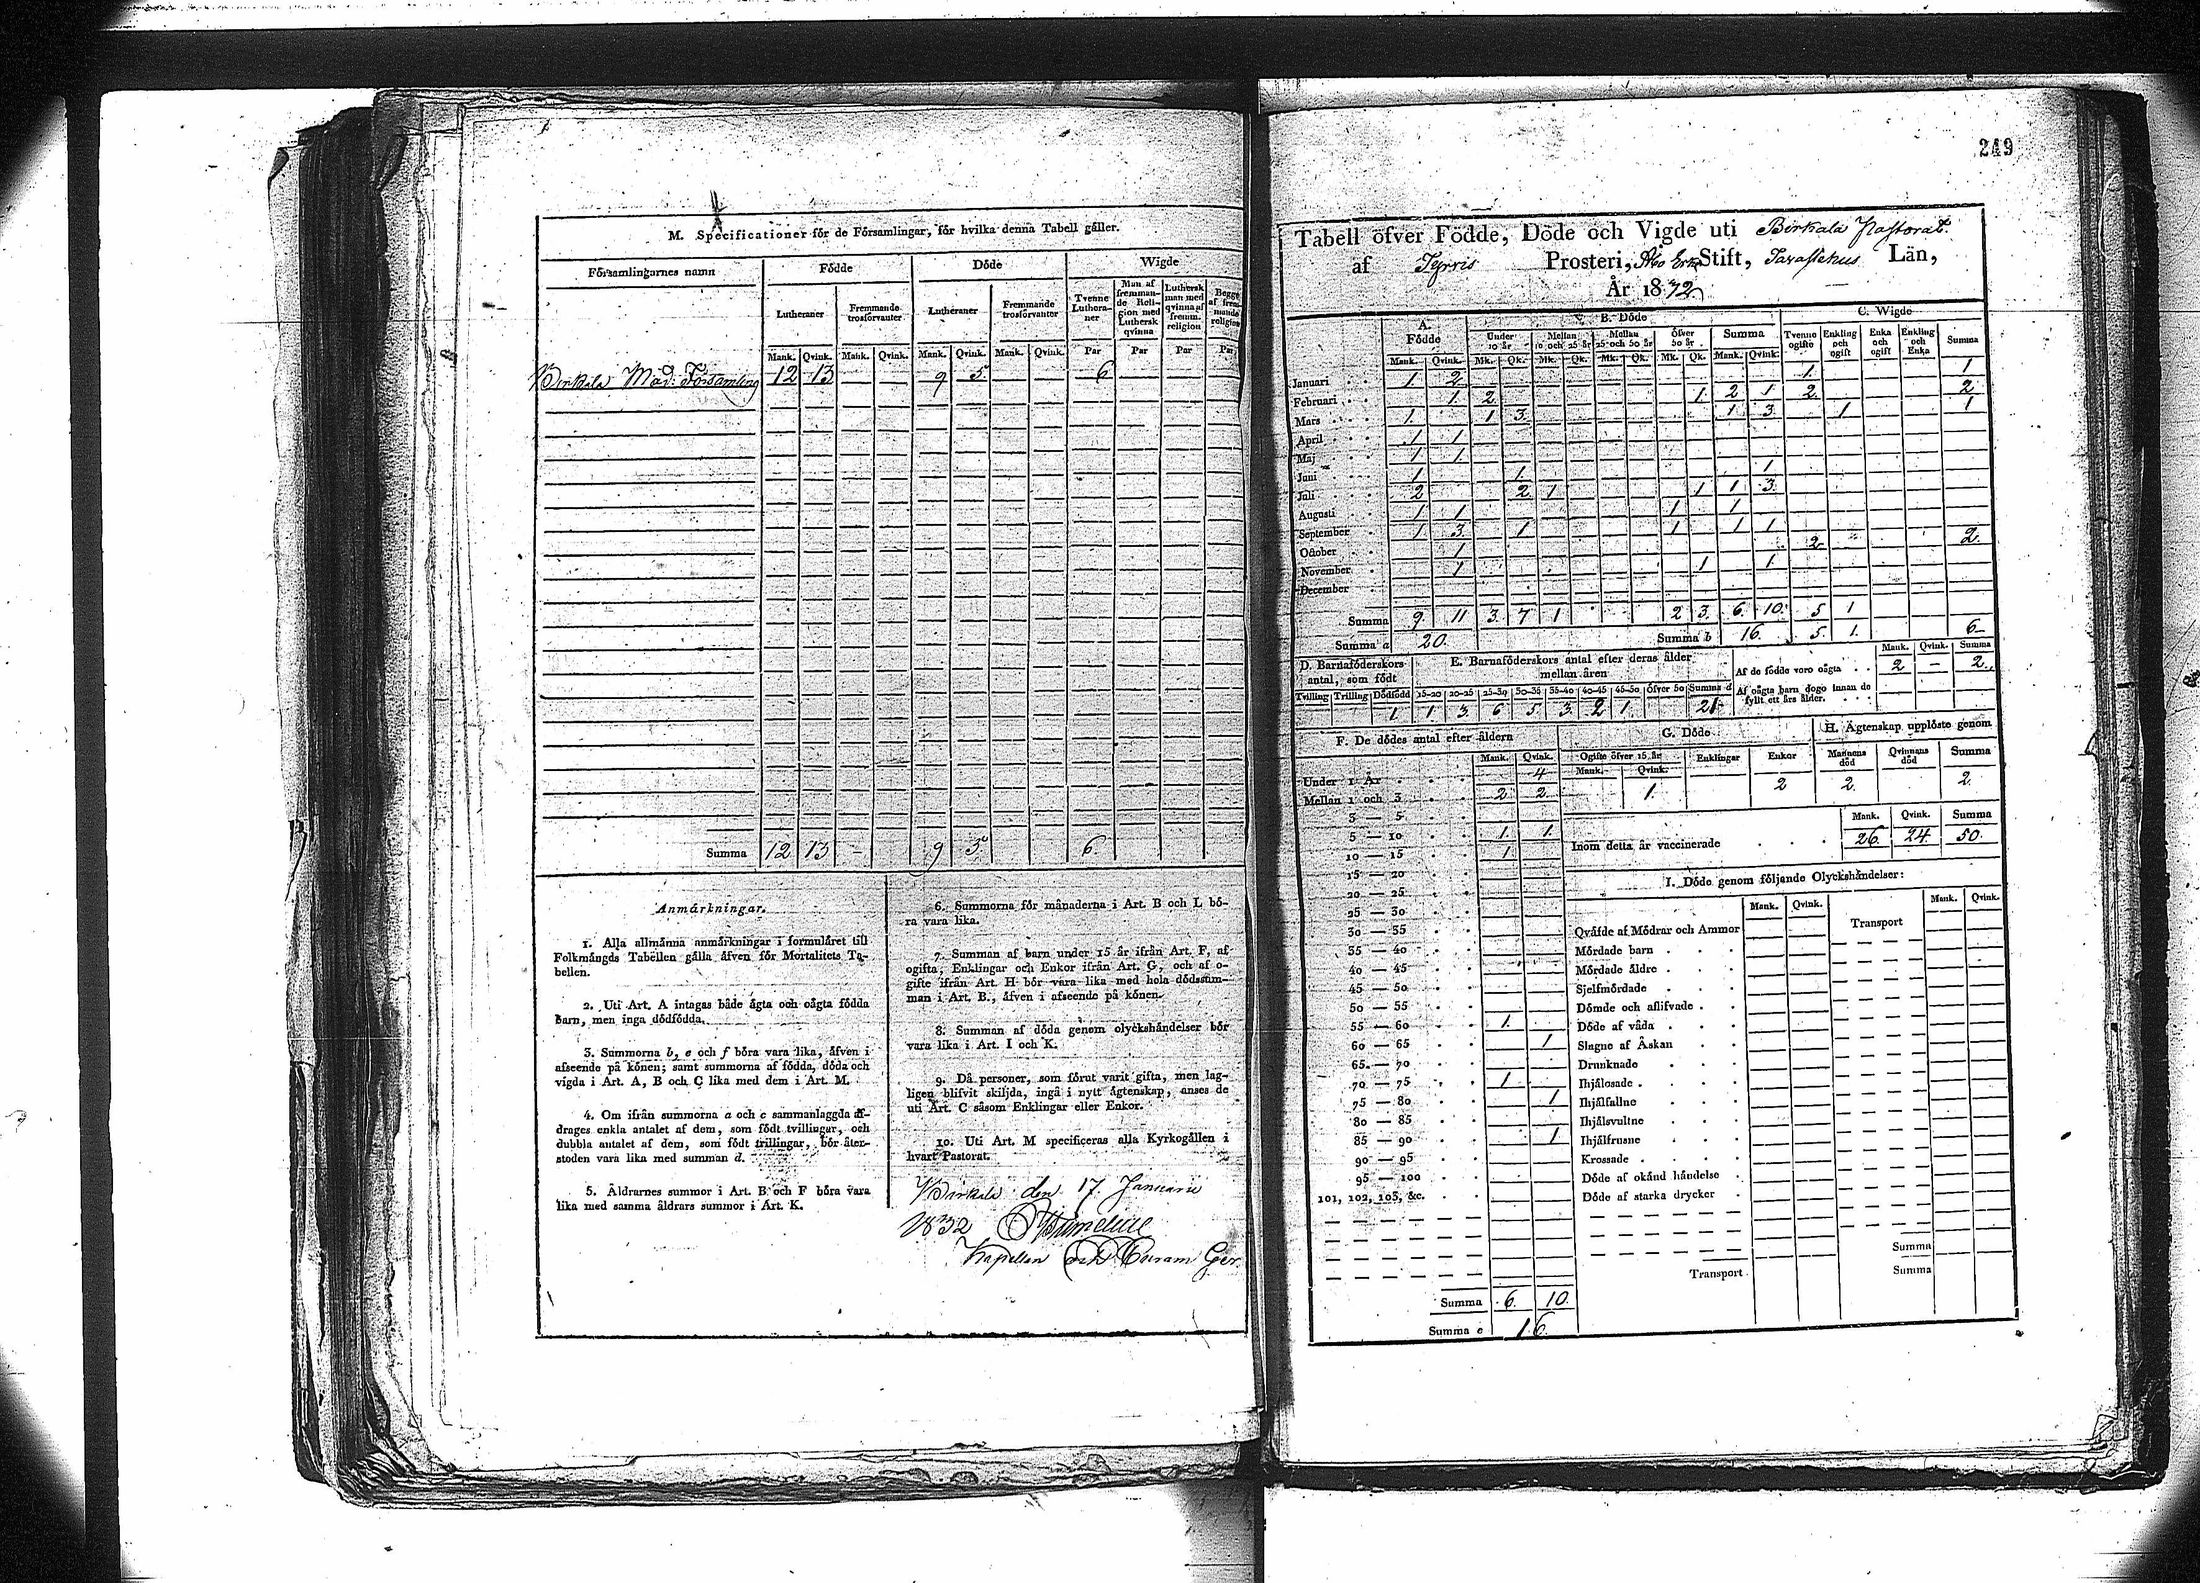 M. Specificationer för de Församlingar, för hvilka denna Tabell gäller.
Församlingarnes namn Födde Döde Wigde
Lutheraner Fremmande trosförvanter Lutheraner Fremmande trosförvanter Tvenne Lutheraner Man af fremmande Religion med Luthersk qvinna Luthersk man med qvinna af fremm. religion Begge af fremmande religion
Mank. Qvink. Mank. Qvink. Mank. Qvink. Mank. Qvink. Par Par Par Par
Birkala Församling 12 13 9 5 6
Summa 12 13 - 9 5 6
Anmärkningar.
1. Alla allmänna anmärkningar i formuläret till
Folkmängds Tabellen gälla äfven för Mortalitets Ta-
bellen.
2. Uti Art. A intagas både ägta och oägta födda
barn, men inga dödfödda.
3. Summorna b, e och f böra vara lika, äfven i
afseende på könen; samt summorna af födda, döda och
vigda i Art. A, B och C lika med dem i Art. M.
4. Om ifrån summorna a och c sammanlaggda af-
drages enkla antalet af dem, som födt tvillingar, och
dubbla antalet af dem, som födt trillingar, bör åter-
stoden vara lika med summan d.
5. Åldrarnes summor i Art. B och F böra vara
lika med samma åldrars summor i Art. K.
6. Summorna för månaderna i Art. B och L bö-
ra vara lika.
7. Summan af barn under 15 år ifrån Art. F, af
ogifta, Enklingar och Enkor ifrån Art. G, och af o-
gifte ifrån Art. H bör vara lika med hela dödssum-
man i Art. B., äfven i afseende på könen.
8. Summan af döda genom olyckshändelser bör
vara lika i Art. I och K.
9. Då personer, som förut varit gifta, men lag-
ligen blifvit skiljda, ingå i nytt ägtenskap, anses de
uti Art. C såsom Enklingar eller Enkor.
10. Uti Art. M specificeras alla Kyrkogällen i
hvart Pastorat.
Birkala den 17 Januarii
1832
Kapellan och
249
Tabell öfver Födde, Döde och Vigde uti Birkala Pastorat
af Tyrvis Prosteri, Åbo Erke Stift, Tavastehus Län,
År 1832
A. Födde B. Döde C. Wigde
Under 10 år Mellan 10 och 25 år Mellan 25 och 50 år Öfver 50 år Summa Tvenne ogifte Enkling och ogift Enka och ogift Enkling och Enka Summa
Mank. Qvink. Mk. Qk. Mk. Qk. Mk. Qk. Mk. Qk. Mank. Qvink.
Januari 1 2 1 1
Februari 1 2 1 2 1 2 2
Mars 1 1 3 1 3 1 1
April 1 1
Maj 1 1
Juni 1 1 1
Juli 2 2 1 1 1 3
Augusti 1 1 1 1
September 1 3 1 1 1 1
October 1 2 2
November 1 1 1
December
Summa 9 11 3 7 1 2 3 6 10 5 1
Summa a 20. Summa b 16. 5 1. 6
D. Barnaföderskors antal, som födt E. Barnaföderskors antal efter deras ålder mellan åren Mank. Qvink. Summa
Af de födde voro oägta 2 - 2
Tvilling Trilling Dödfödd 15-20 20-25 25-30 30-35 35-40 40-45 45-50 Öfver 50 Summa d
Af oägta barn dogo innan de fyllt ett års ålder.
1 1 3 6 5 3 2 1 21
F. De dödes antal efter åldern G. Döde H. Ägtenskap upplöste genom
Mank. Qvink. Ogifte öfver 15 år Mank. Qvink. Enklingar Enkor Mannens död Qvinnans död Summa
Under 1 År 4
Mellan 1 och 3 2 2 1 2 2 2
3 — 5
5 — 10 1 1
10 — 15 1
15 — 20
20 — 25
25 — 30
30 — 35
35 — 40
40 — 45
45 — 50
50 — 55
55 — 60 1
60 — 65 1
65 — 70
70 — 75 1
75 — 80 1
80 — 85
85 — 90 1
90 — 95
95 — 100
101, 102, 103, &c.
Summa 6 10
Summa e 16
Mank. Qvink. Summa
Inom detta år vaccinerade 26 24 50
I. Döde genom följande Olyckshändelser:
Mank. Qvink. Transport Mank. Qvink.
Qväfde af Mödrar och Ammor
Mördade barn
Mördade äldre
Sjelfmördade
Dömde och aflifvade
Döde af våda
Slagne af Åskan
Drunknade
Ihjälosade
Ihjälfallne
Ihjälsvultne
Ihjälfrusne
Krossade
Döde af okänd händelse
Döde af starka drycker
Summa
Transport Summa